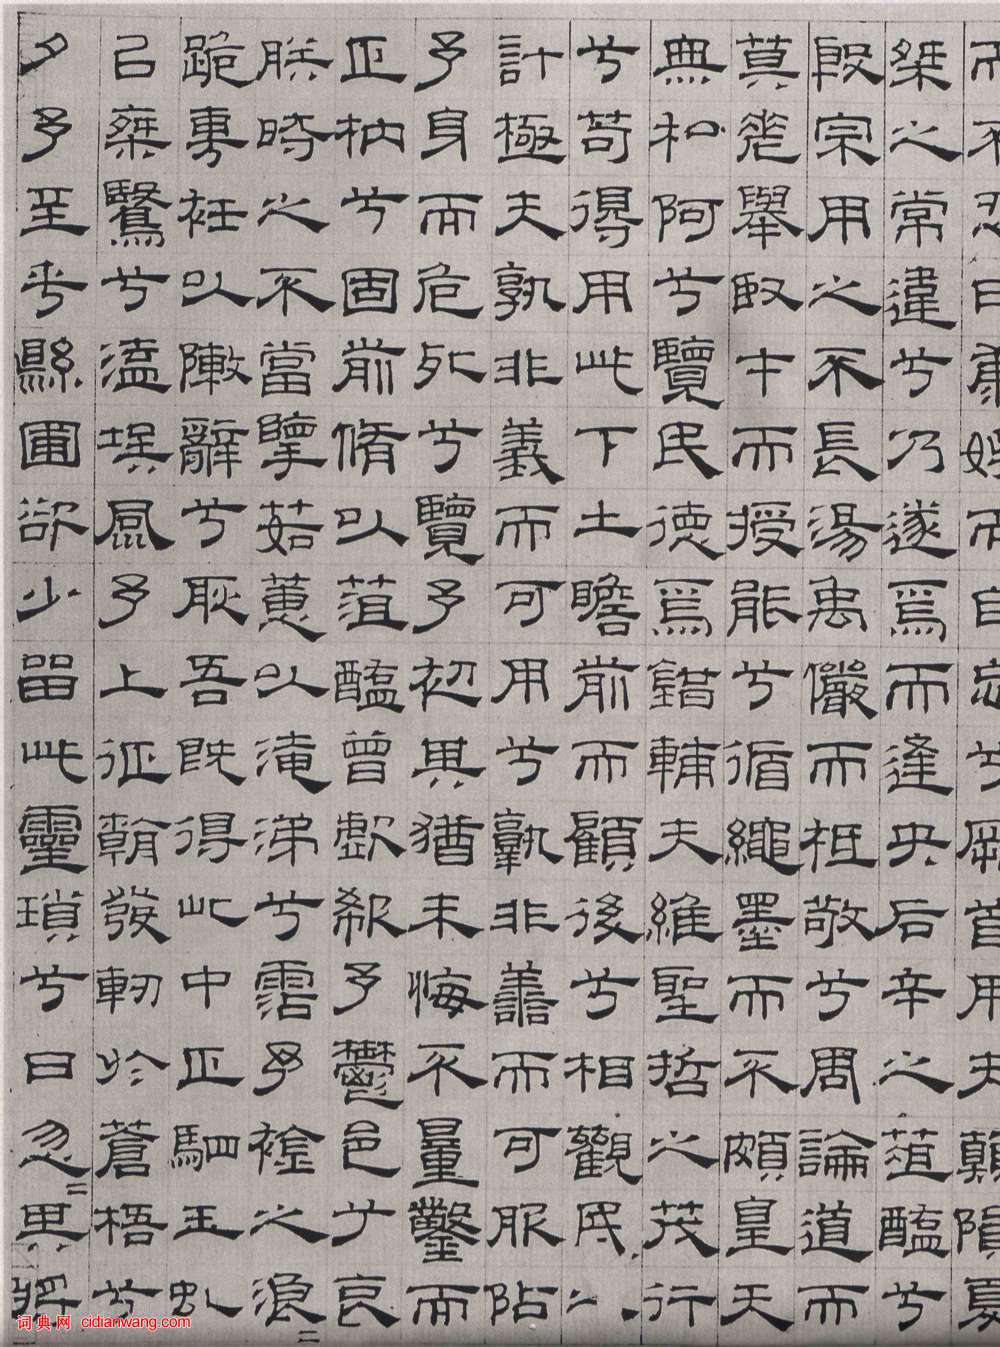 而不忍日康娛而自忘兮厥首用夫顛隕夏
桀之常違兮乃遂焉而逢央后辛之菹醢兮
殷宗用之不長湯禹儼而祗敬兮周論道而
莫差舉取才而授能兮循繩墨而不頗皇天
無私阿兮覽民德焉錯輔夫維聖哲之茂行
兮苟得用此下土瞻前而顧後兮相觀民之
計極夫孰非義而可用兮孰非善而可服阽
予身而危死兮覽予初其猶未悔不量鑿而
正枘兮固前脩以菹醢曾歔欷予鬱邑兮哀
朕時之不當擥茹蕙以淹涕兮霑予襟之浪=
跪尃衽以陳辭兮耿吾既得此中正駟玉虬
以椉鷖兮溘埃風予上征朝發軔於蒼梧兮
夕予至乎縣圃欲少留此靈瑣兮日忽=其將
词典网 cidianwang.com